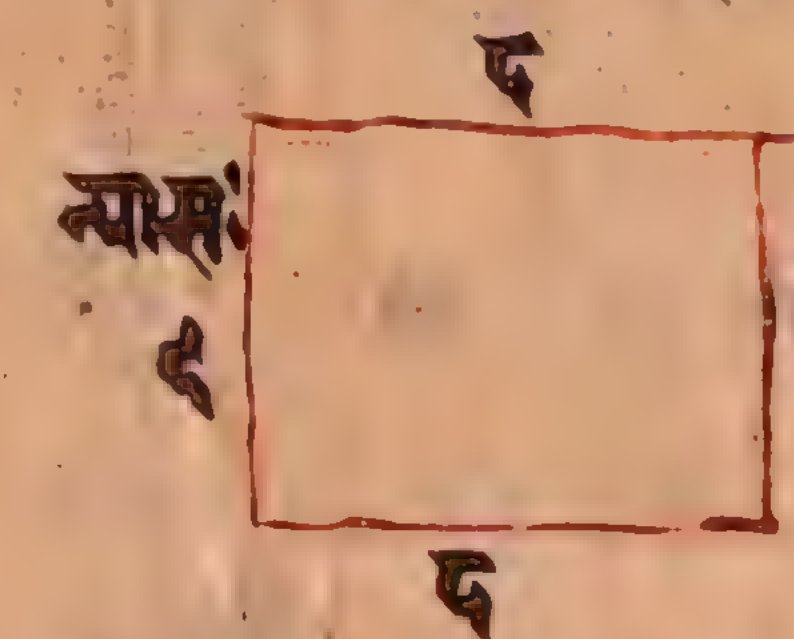 ८
न्यासः
६
८